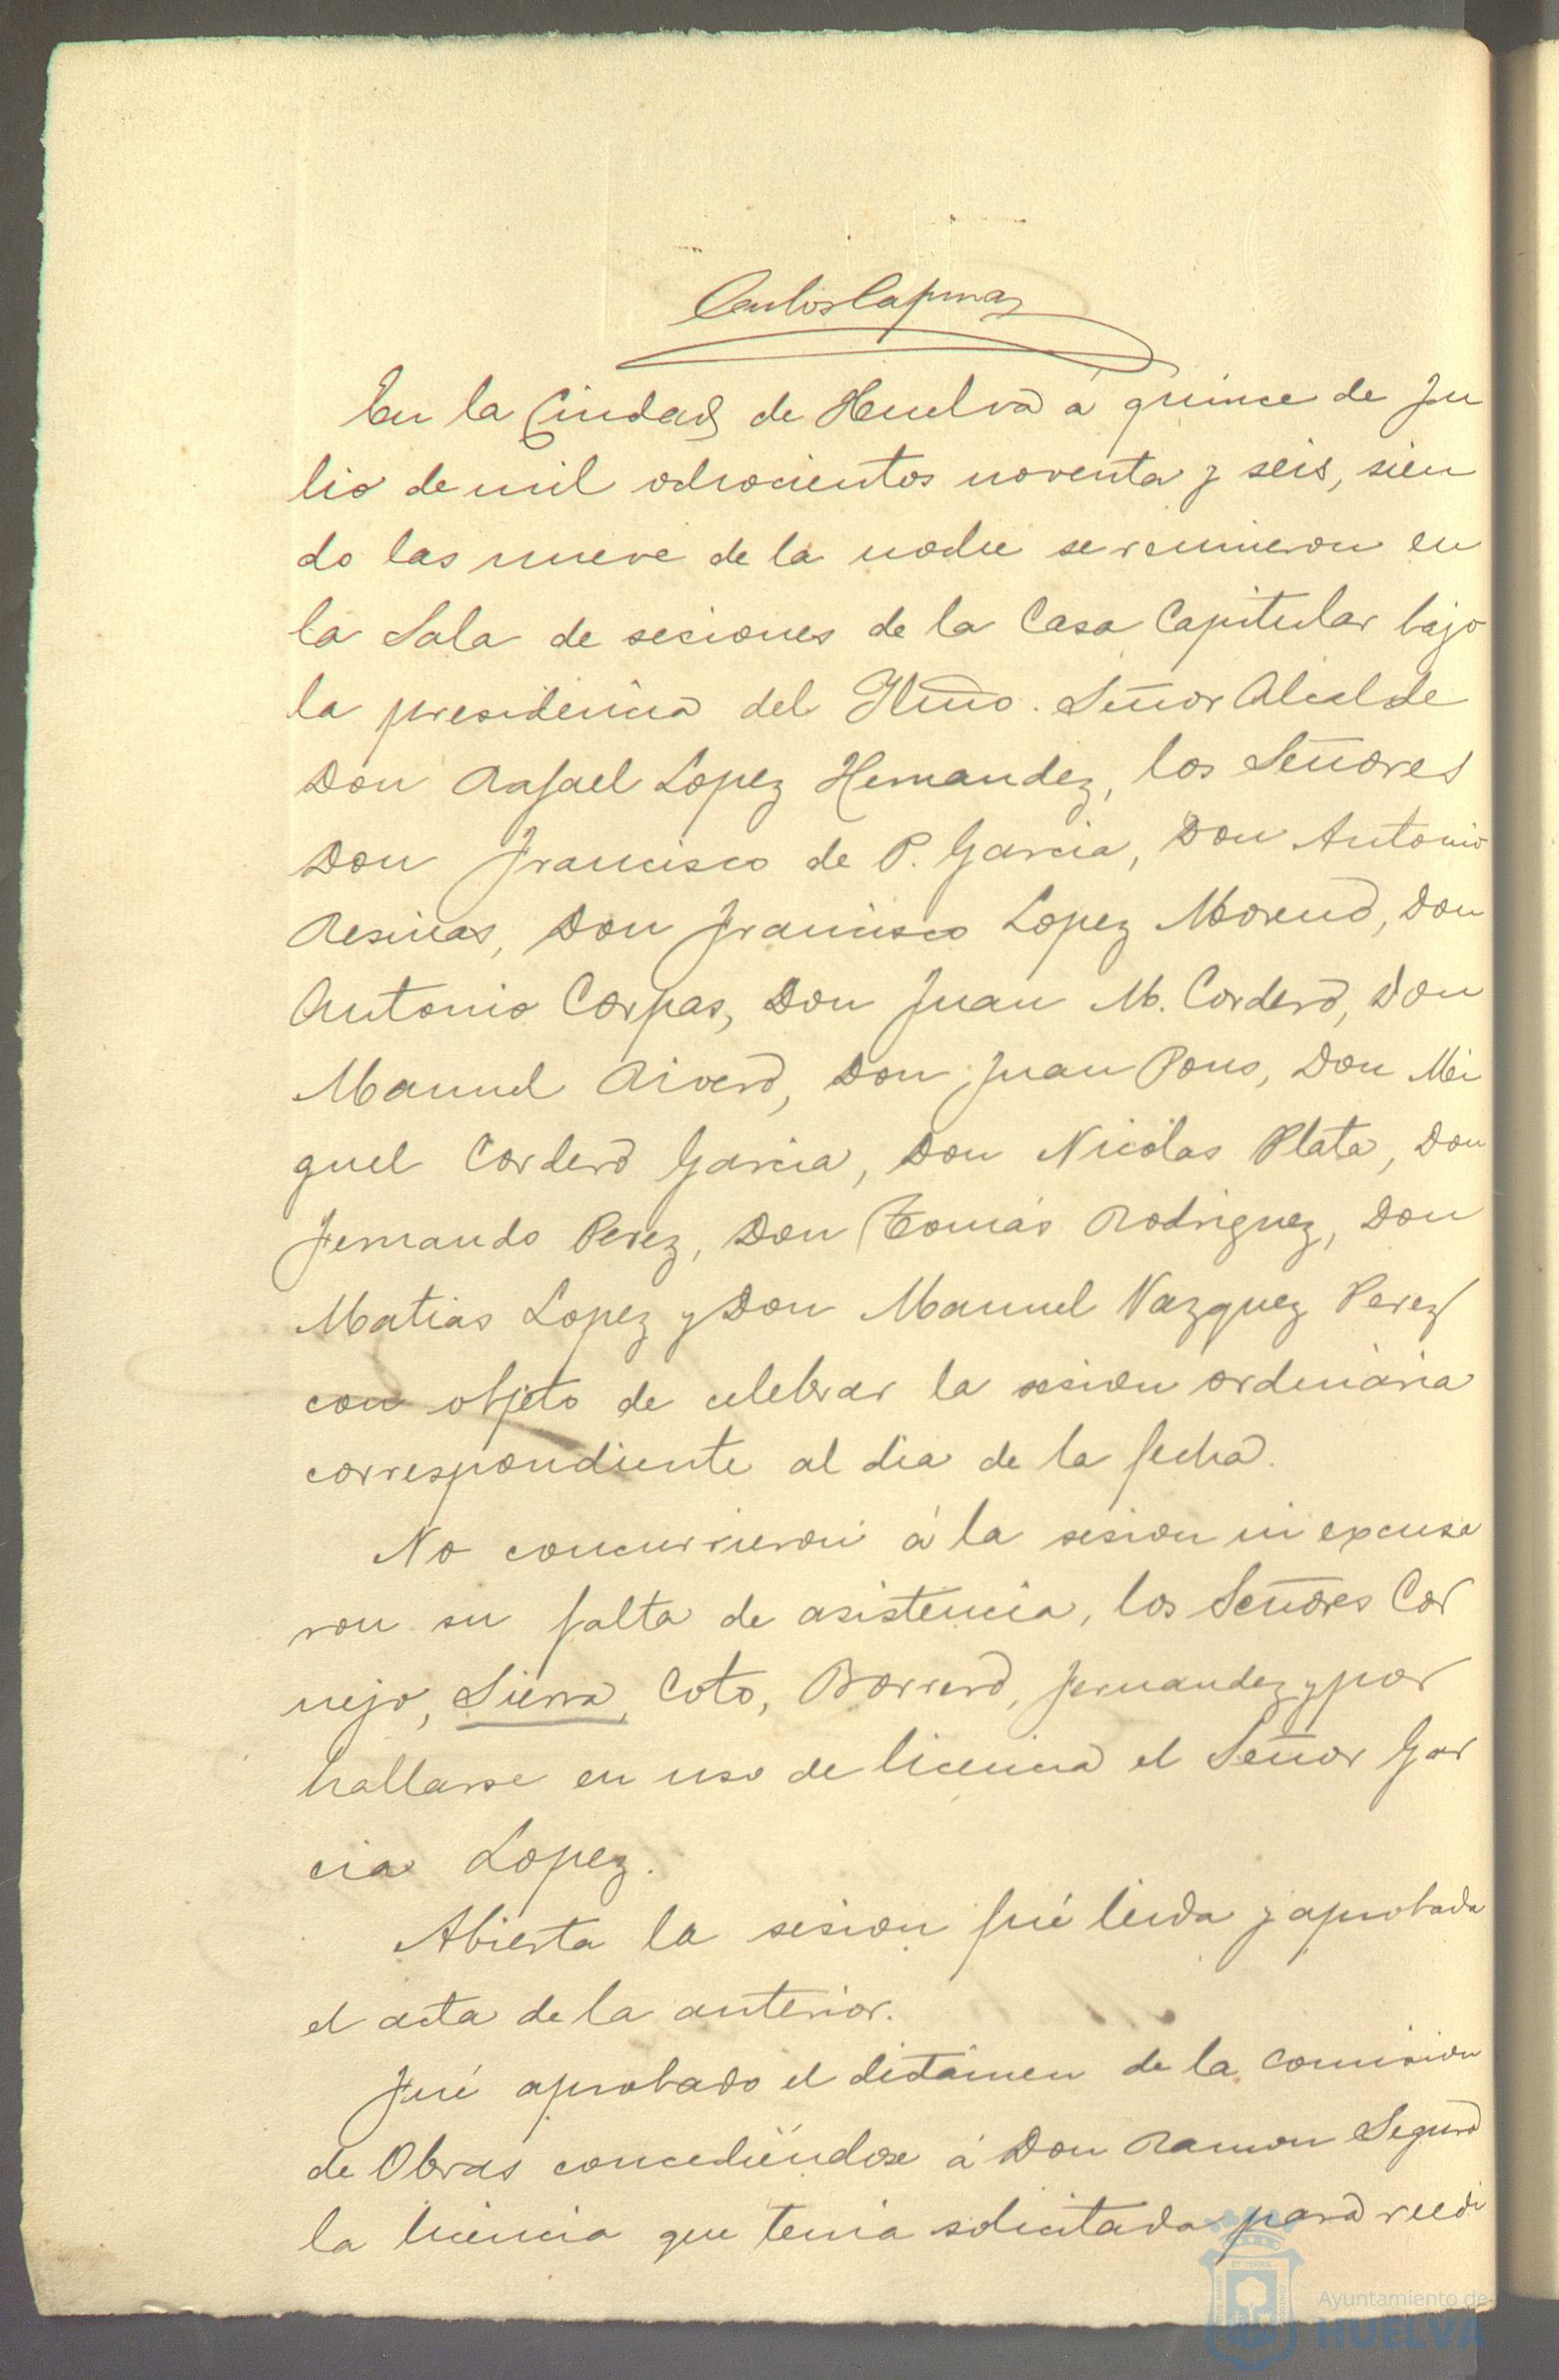 Carlos
En la Ciudad de Huelva á quince de Ju
lio de mil ochocientos noventa y seis, sien
do las nueve de la noche se reunieron en
la Sala de sesiones de la Casa Capitular bajo
la presidencia del Iltmo. Señor Alcalde
Don Rafael Lopez Hernandez, los Señores
Don Francisco de P. Garcia, Don Antonio
Resinas, Don Francisco Lopez Moreno, Don
Antonio Corpas, Don Juan M. Cordero, Don
Manuel Rivero, Don Juan Pons, Don Mi
guel Cordero Garcia, Don Nicolas Plata, Don
Fernando Perez, Don Tomás Rodriguez, Don
Matias Lopez y Don Manuel Vazquez Perez
con objeto de celebrar la sesion ordinaria
correspondiente al dia de la fecha.
No concurrieron á la sesion ni excusa
ron su falta de asistencia, los Señores Cor
nejo, Sierra, Coto, Borrero, Fernandez y por
hallarse en uso de licencia el Señor Gar
cia Lopez.
Abierta la sesion fué leida y aprobada
el acta de la anterior.
Fué aprobado el dictámen de la comision
de Obras concediéndose á Don Ramon Seguro
la licencia que tenia solicitada para reedi
Ayuntamiento de
HUELVA